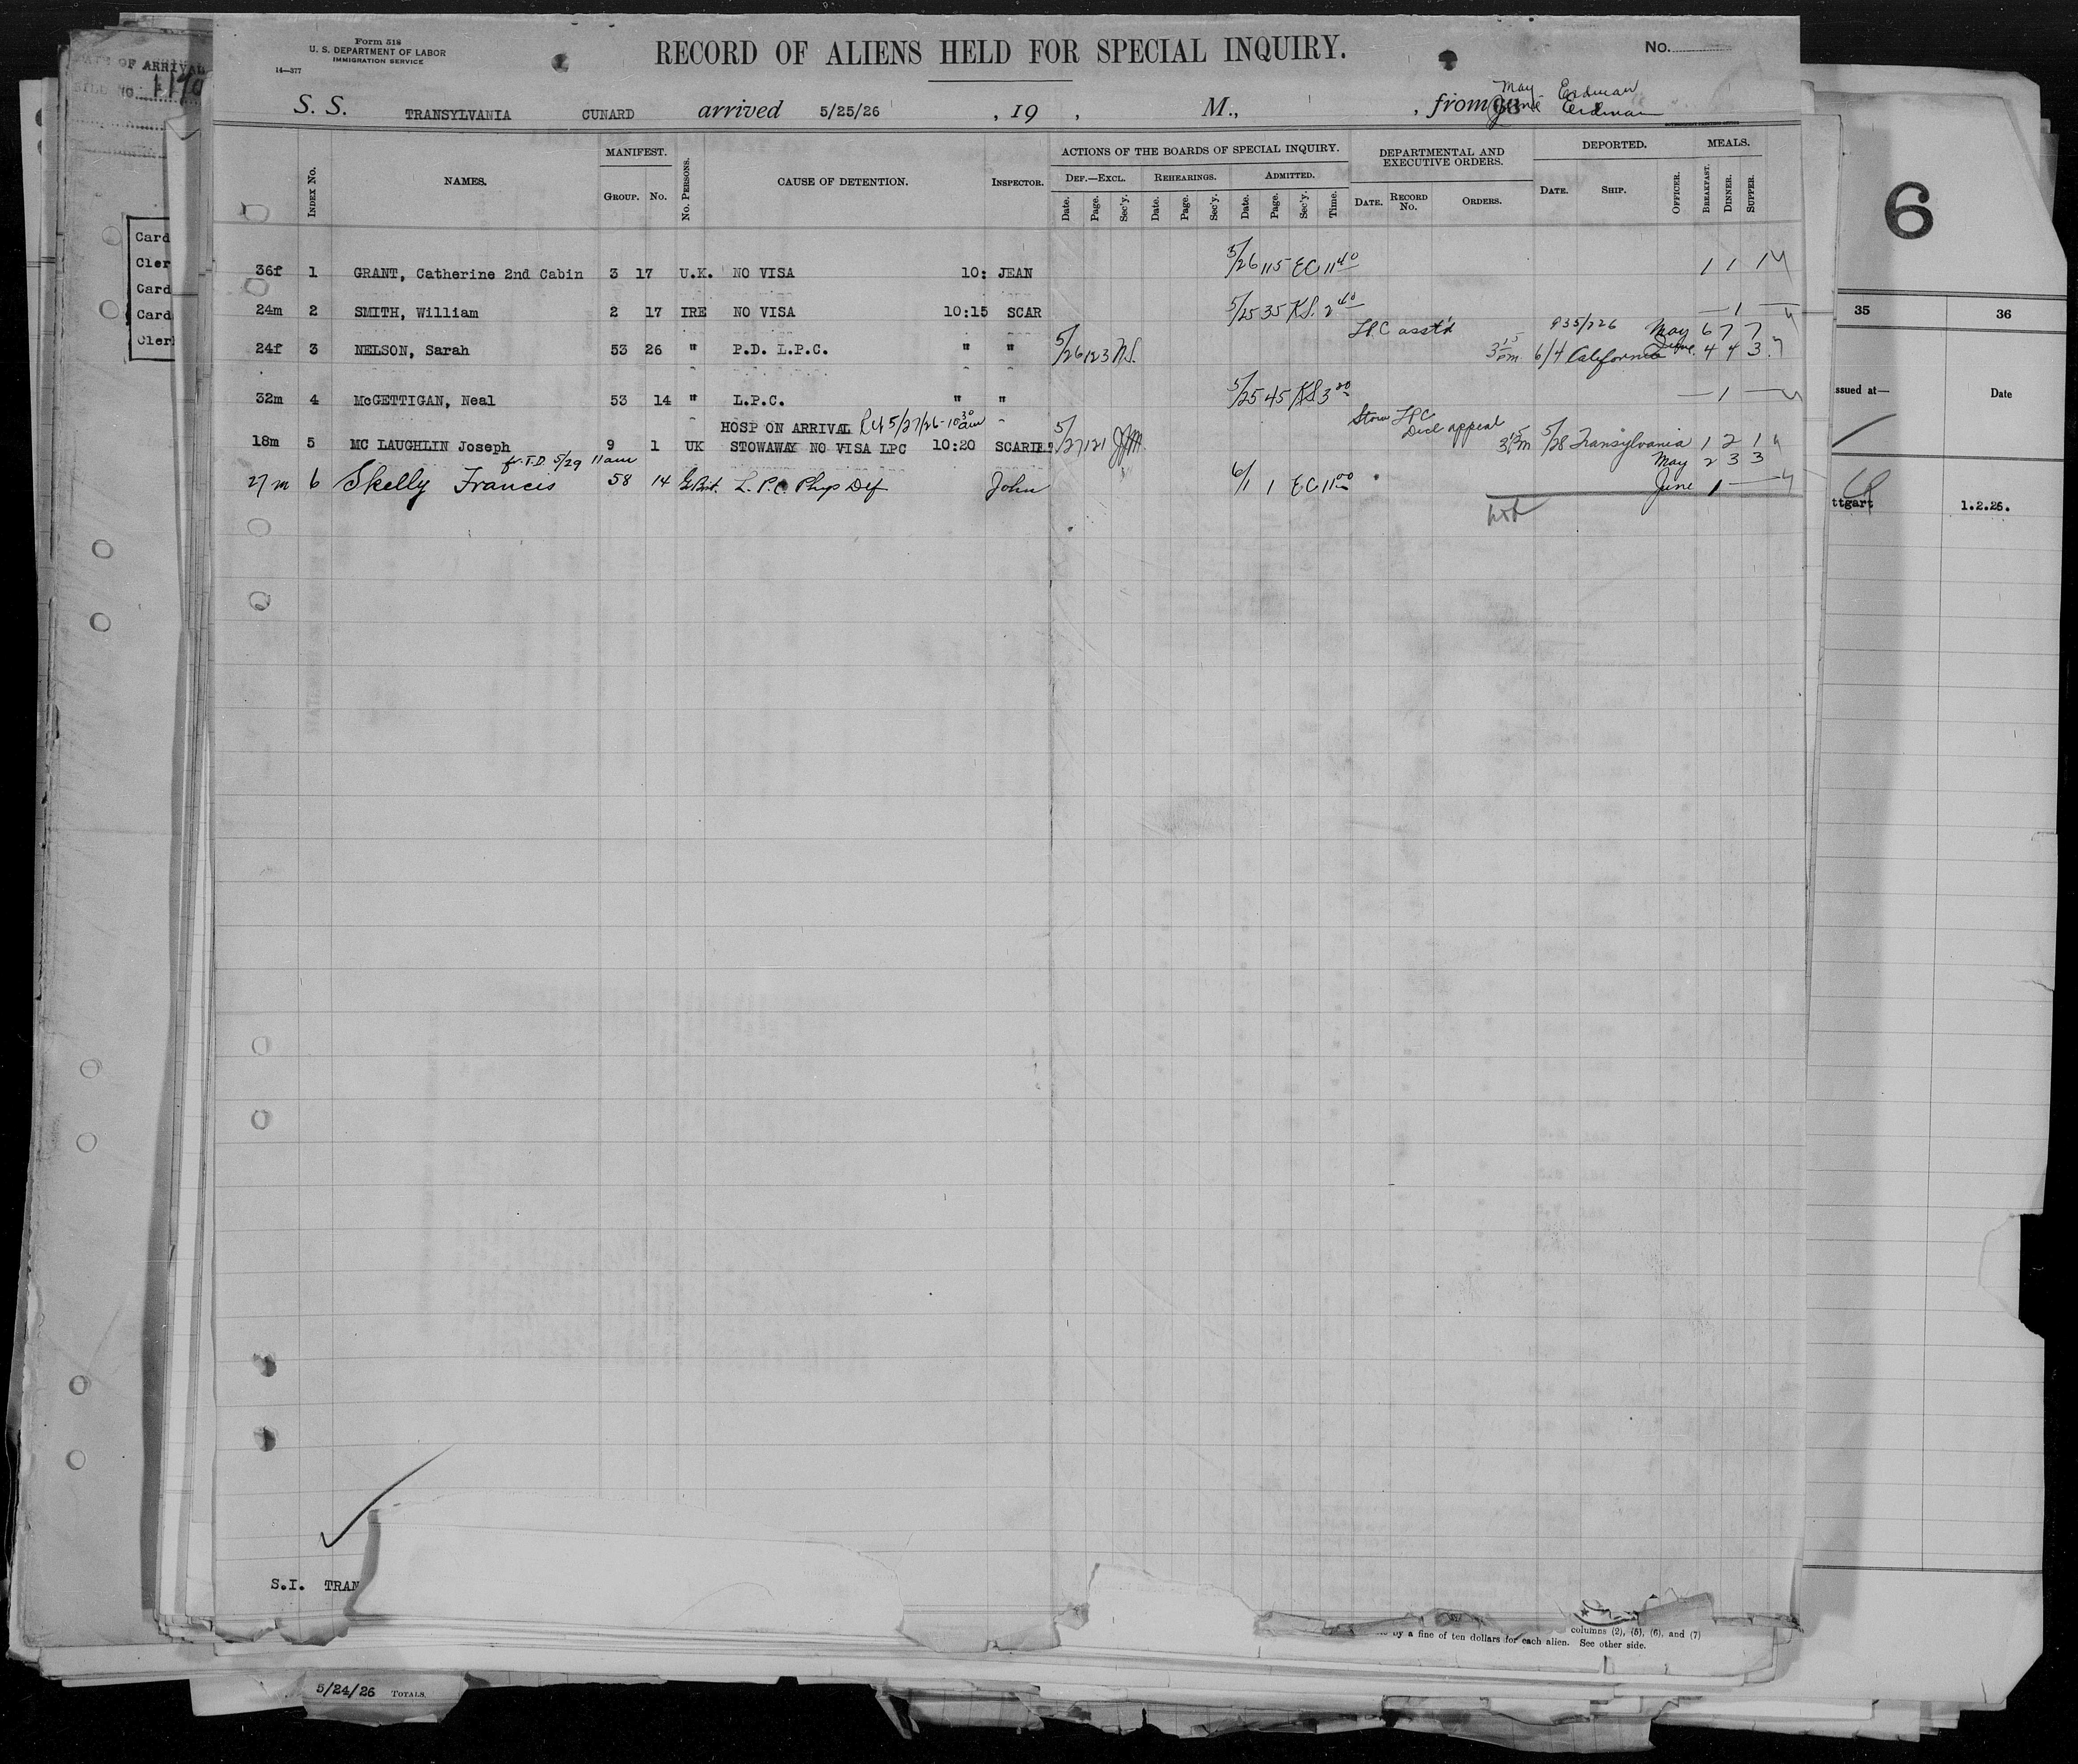 Form 518
U. S. DEPARTMENT OF LABOR
IMMIGRATION SERVICE
14—577
RECORD OF ALIENS HELD FOR SPECIAL INQUIRY.
No.
May Erdman
S. S. TRANSYLVANIA CUNARD arrived 5/25/26 , 19 , M., , from June Erdman
INDEX No. NAMES. MANIFEST. GROUP. No. No. PERSONS. CAUSE OF DETENTION. INSPECTOR. ACTIONS OF THE BOARDS OF SPECIAL INQUIRY. DEF.—EXCL. Date. Page. Sec'y. REHEARINGS. Date. Page. Sec'y. ADMITTED. Date. Page. Sec'y. Time. DEPARTMENTAL AND EXECUTIVE ORDERS. DATE. RECORD No. ORDERS. DEPORTED. DATE. SHIP. OFFICER. MEALS. BREAKFAST. DINNER. SUPPER.
36f 1 GRANT, Catherine 2nd Cabin 3 17 U.K. NO VISA 10: JEAN 5/26 115 EC 11 40 1 1 1
24m 2 SMITH, William 2 17 IRE NO VISA 10:15 SCAR 5/25 35 K.S. 2 40 — 1 —
LPC asst'd 935/226 May 6 7 7
24f 3 NELSON, Sarah 53 26 " P.D. L.P.C. " " 5/26 123 N.S. 3 15 pm 6/4 California June 4 4 3
32m 4 McGETTIGAN, Neal 53 14 " L.P.C. " " 5/25 45 KS 3 00 — 1 —
HOSP ON ARRIVAL 5/27/26-10 30 am Stow LPC
Decl appeal
18m 5 MC LAUGHLIN Joseph 9 1 UK STOWAWAY NO VISA LPC 10:20 5/27 121 5/28 Transylvania 1 2 1
fr. T.D. 5/29 11am May 2 3 3
27m 6 Skelly Francis 58 14 L.P.C. Phys Def John 6/1 1 EC 11 00 June 1 —
S.I. TRAN
OF ARRIVAL
Card
Cler
Card
Card
Cler
6
35 36
ssued at— Date
ttgart 1.2.26.
columns (2), (5), (6), and (7)
by a fine of ten dollars for each alien. See other side.
5/24/26 TOTALS.